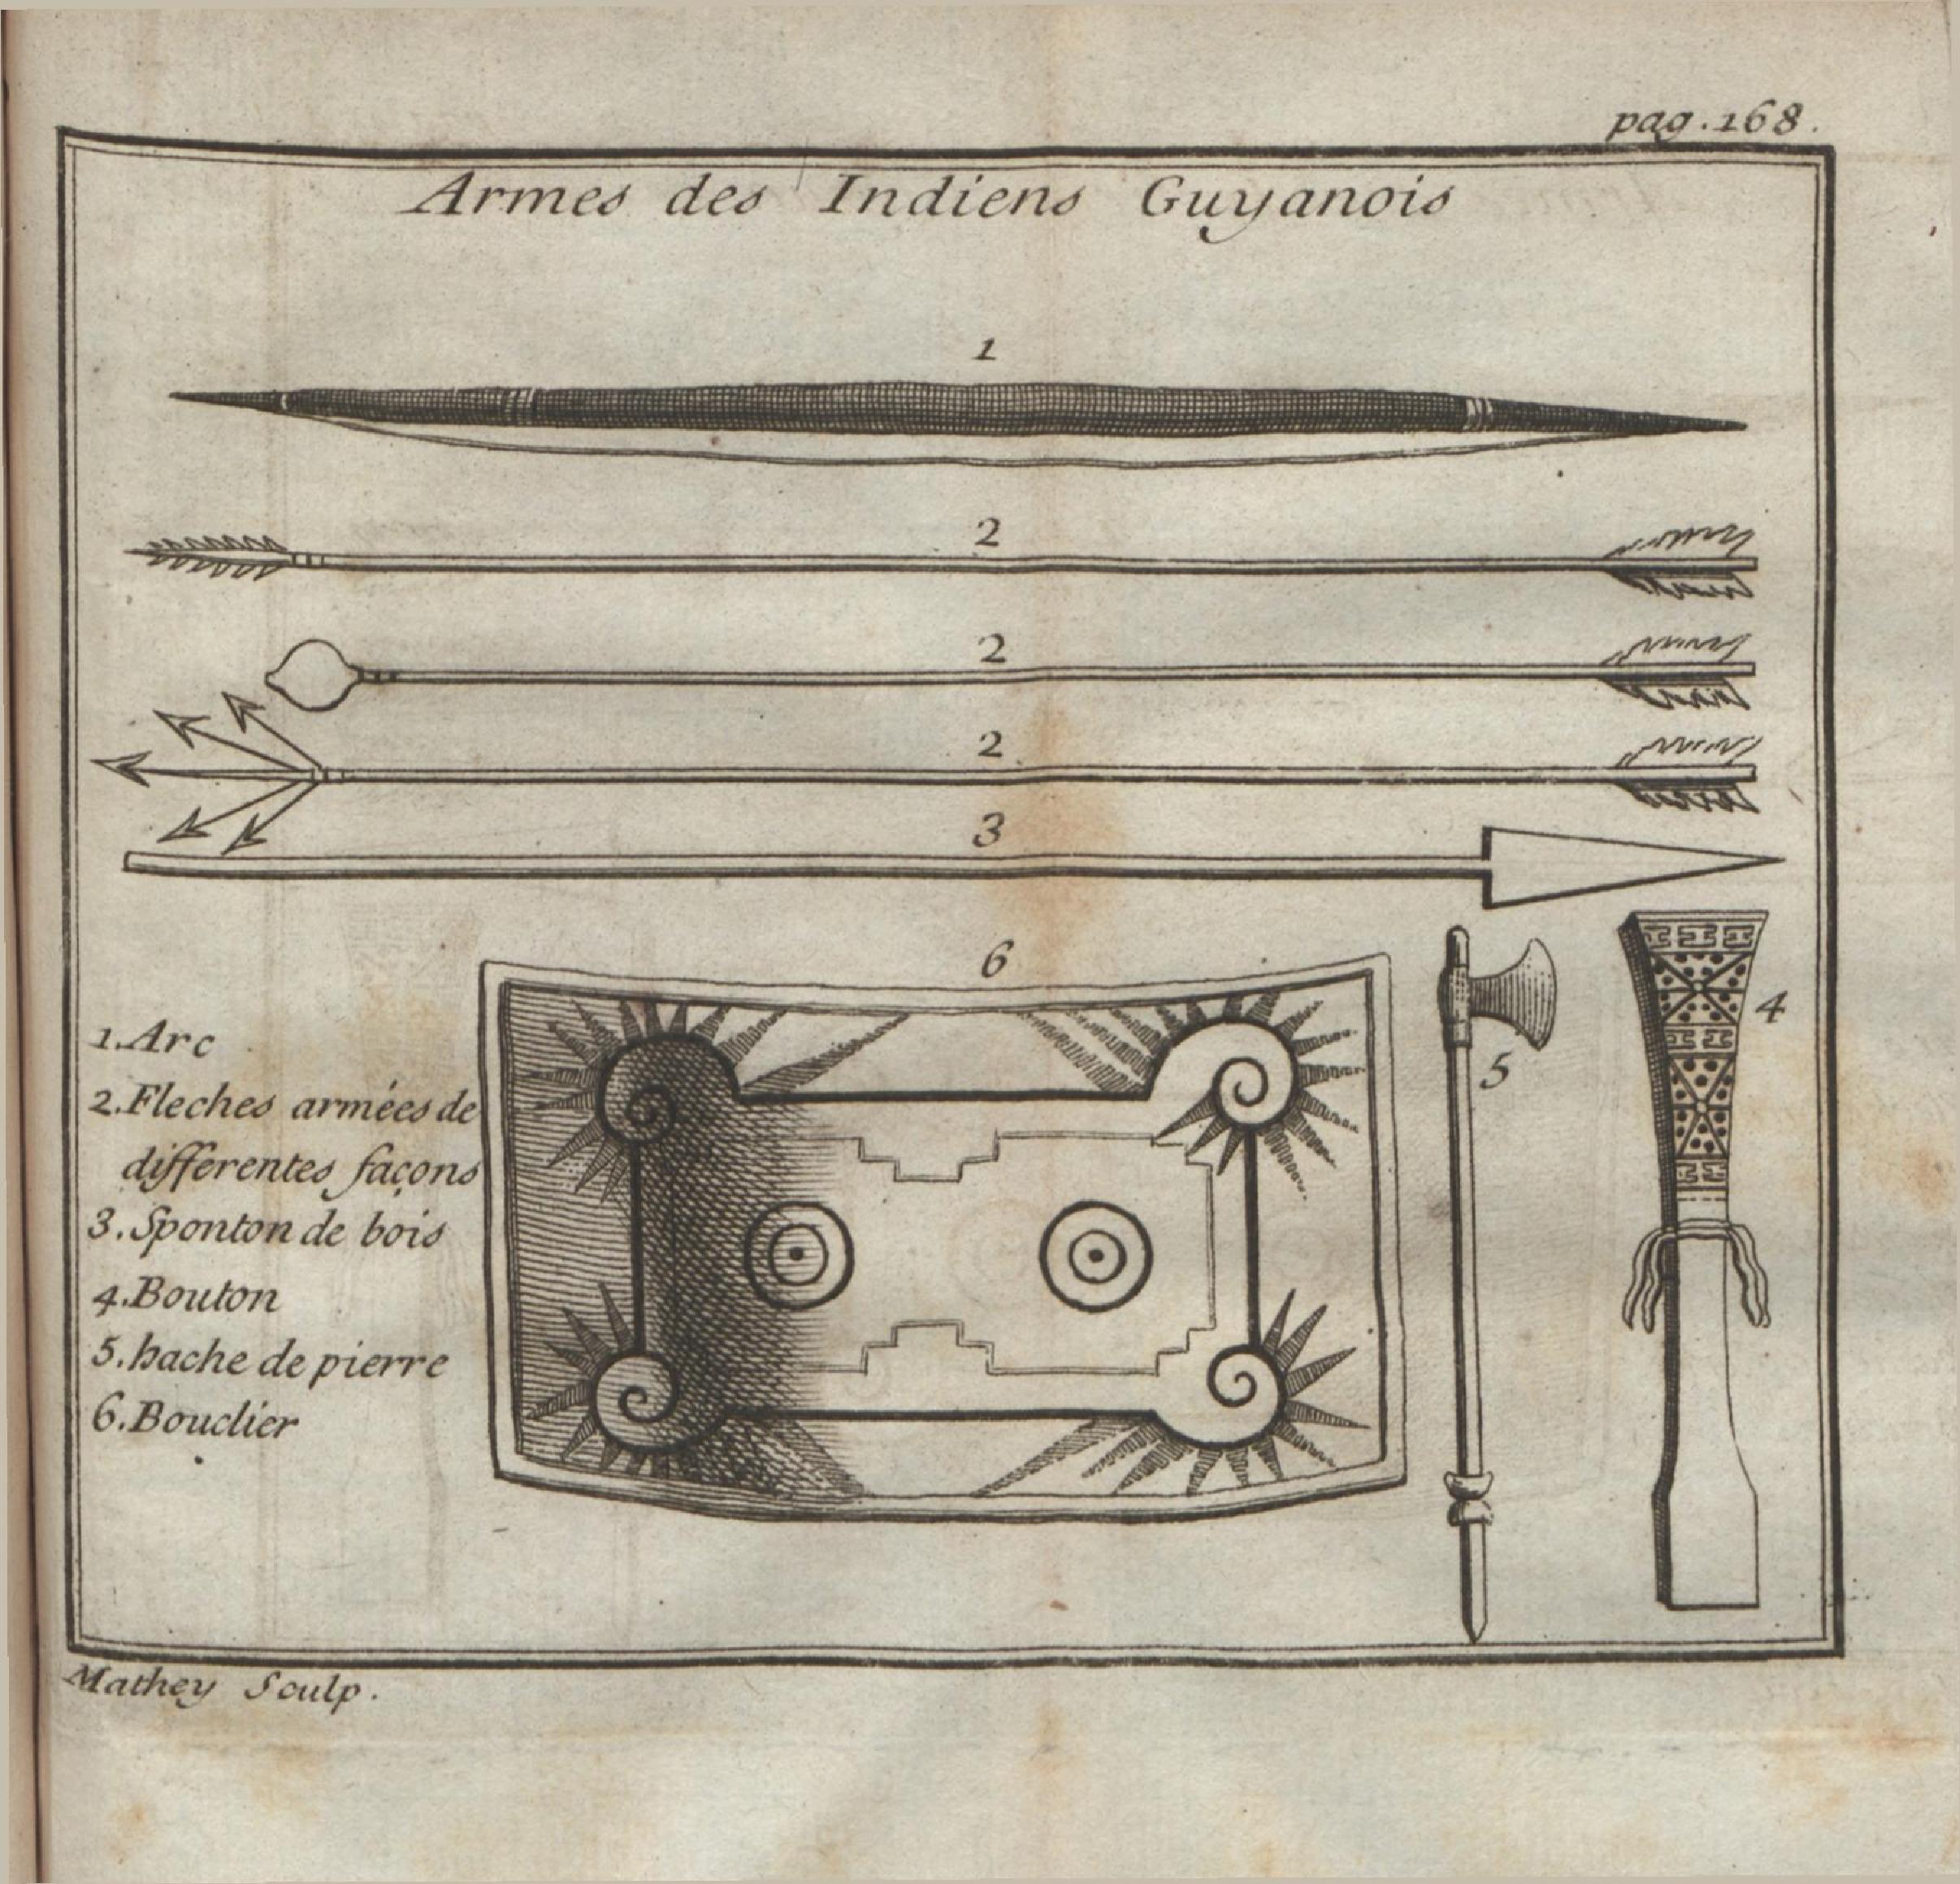 pag. 168.
Armes des Indiens Guyanois
1
2
2
2
3
6
4
5
1. Arc
2. Fleches armées de
differentes façons
3. Sponton de bois
4. Bouton
5. hache de pierre
6. Bouclier
Mathey Sculp.